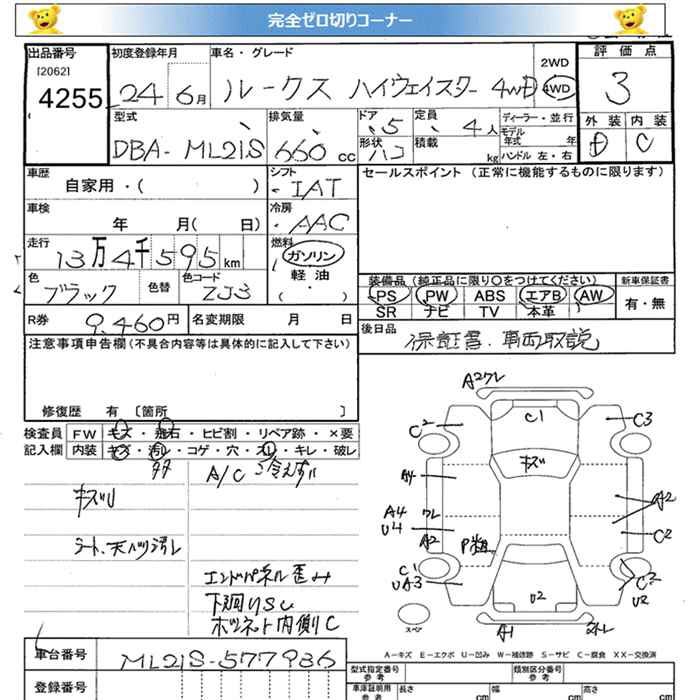 完全ゼロ切りコーナー
出品番号 初度登録年月 車名・グレード 評価点
[2062]
4255 24 6月 ルークス ハイウェイスター 4WD 2WD 4WD 3
型式 排気量 ドア 定員 ディーラー・並行 外装 内装
DBA-ML21S 660cc 5 4人 モデル年式 年 D C
形状 ハコ 積載 kg ハンドル 左・右
車歴 シフト セールスポイント (正常に機能するものに限ります)
自家用・( ) IAT
車検 冷房
年 月( 日) AAC
走行 燃料
13万4千595km ガソリン
色 色替 色コード 軽油
ブラック ZJ3 ( ・ )
装備品 (純正品に限り○をつけてください) 新車保証書
PS PW ABS エアB AW 有・無
SR ナビ TV 本革
R券 9,460円 名変期限 月 日
後日品 保証書・車両取説
注意事項申告欄(不具合内容等は具体的に記入して下さい)
修復歴 有 [箇所 ]
検査員 FW キズ・飛石・ヒビ割・リペア跡・×要
記入欄 内装 キズ・汚れ・コゲ・穴・スレ・キレ・破レ
多々 A/C 冷えず
キズU
シート、天バリ汚レ
エンドパネル歪み
下廻りSU
ボンネット内側C
A2ワレ
C2 C1 C3
キズ
A4
A4 ワレ A2
U4 A2 C2
C1
UA3 U2 C2
U2
スペア A1
A-キズ E-エクボ U-凹み W-補修跡 S-サビ C-腐食 XX-交換済
車台番号 ML21S-577936
登録番号
型式指定番号 類別区分番号
車庫証明用参考 長さ cm 幅 cm 高さ cm